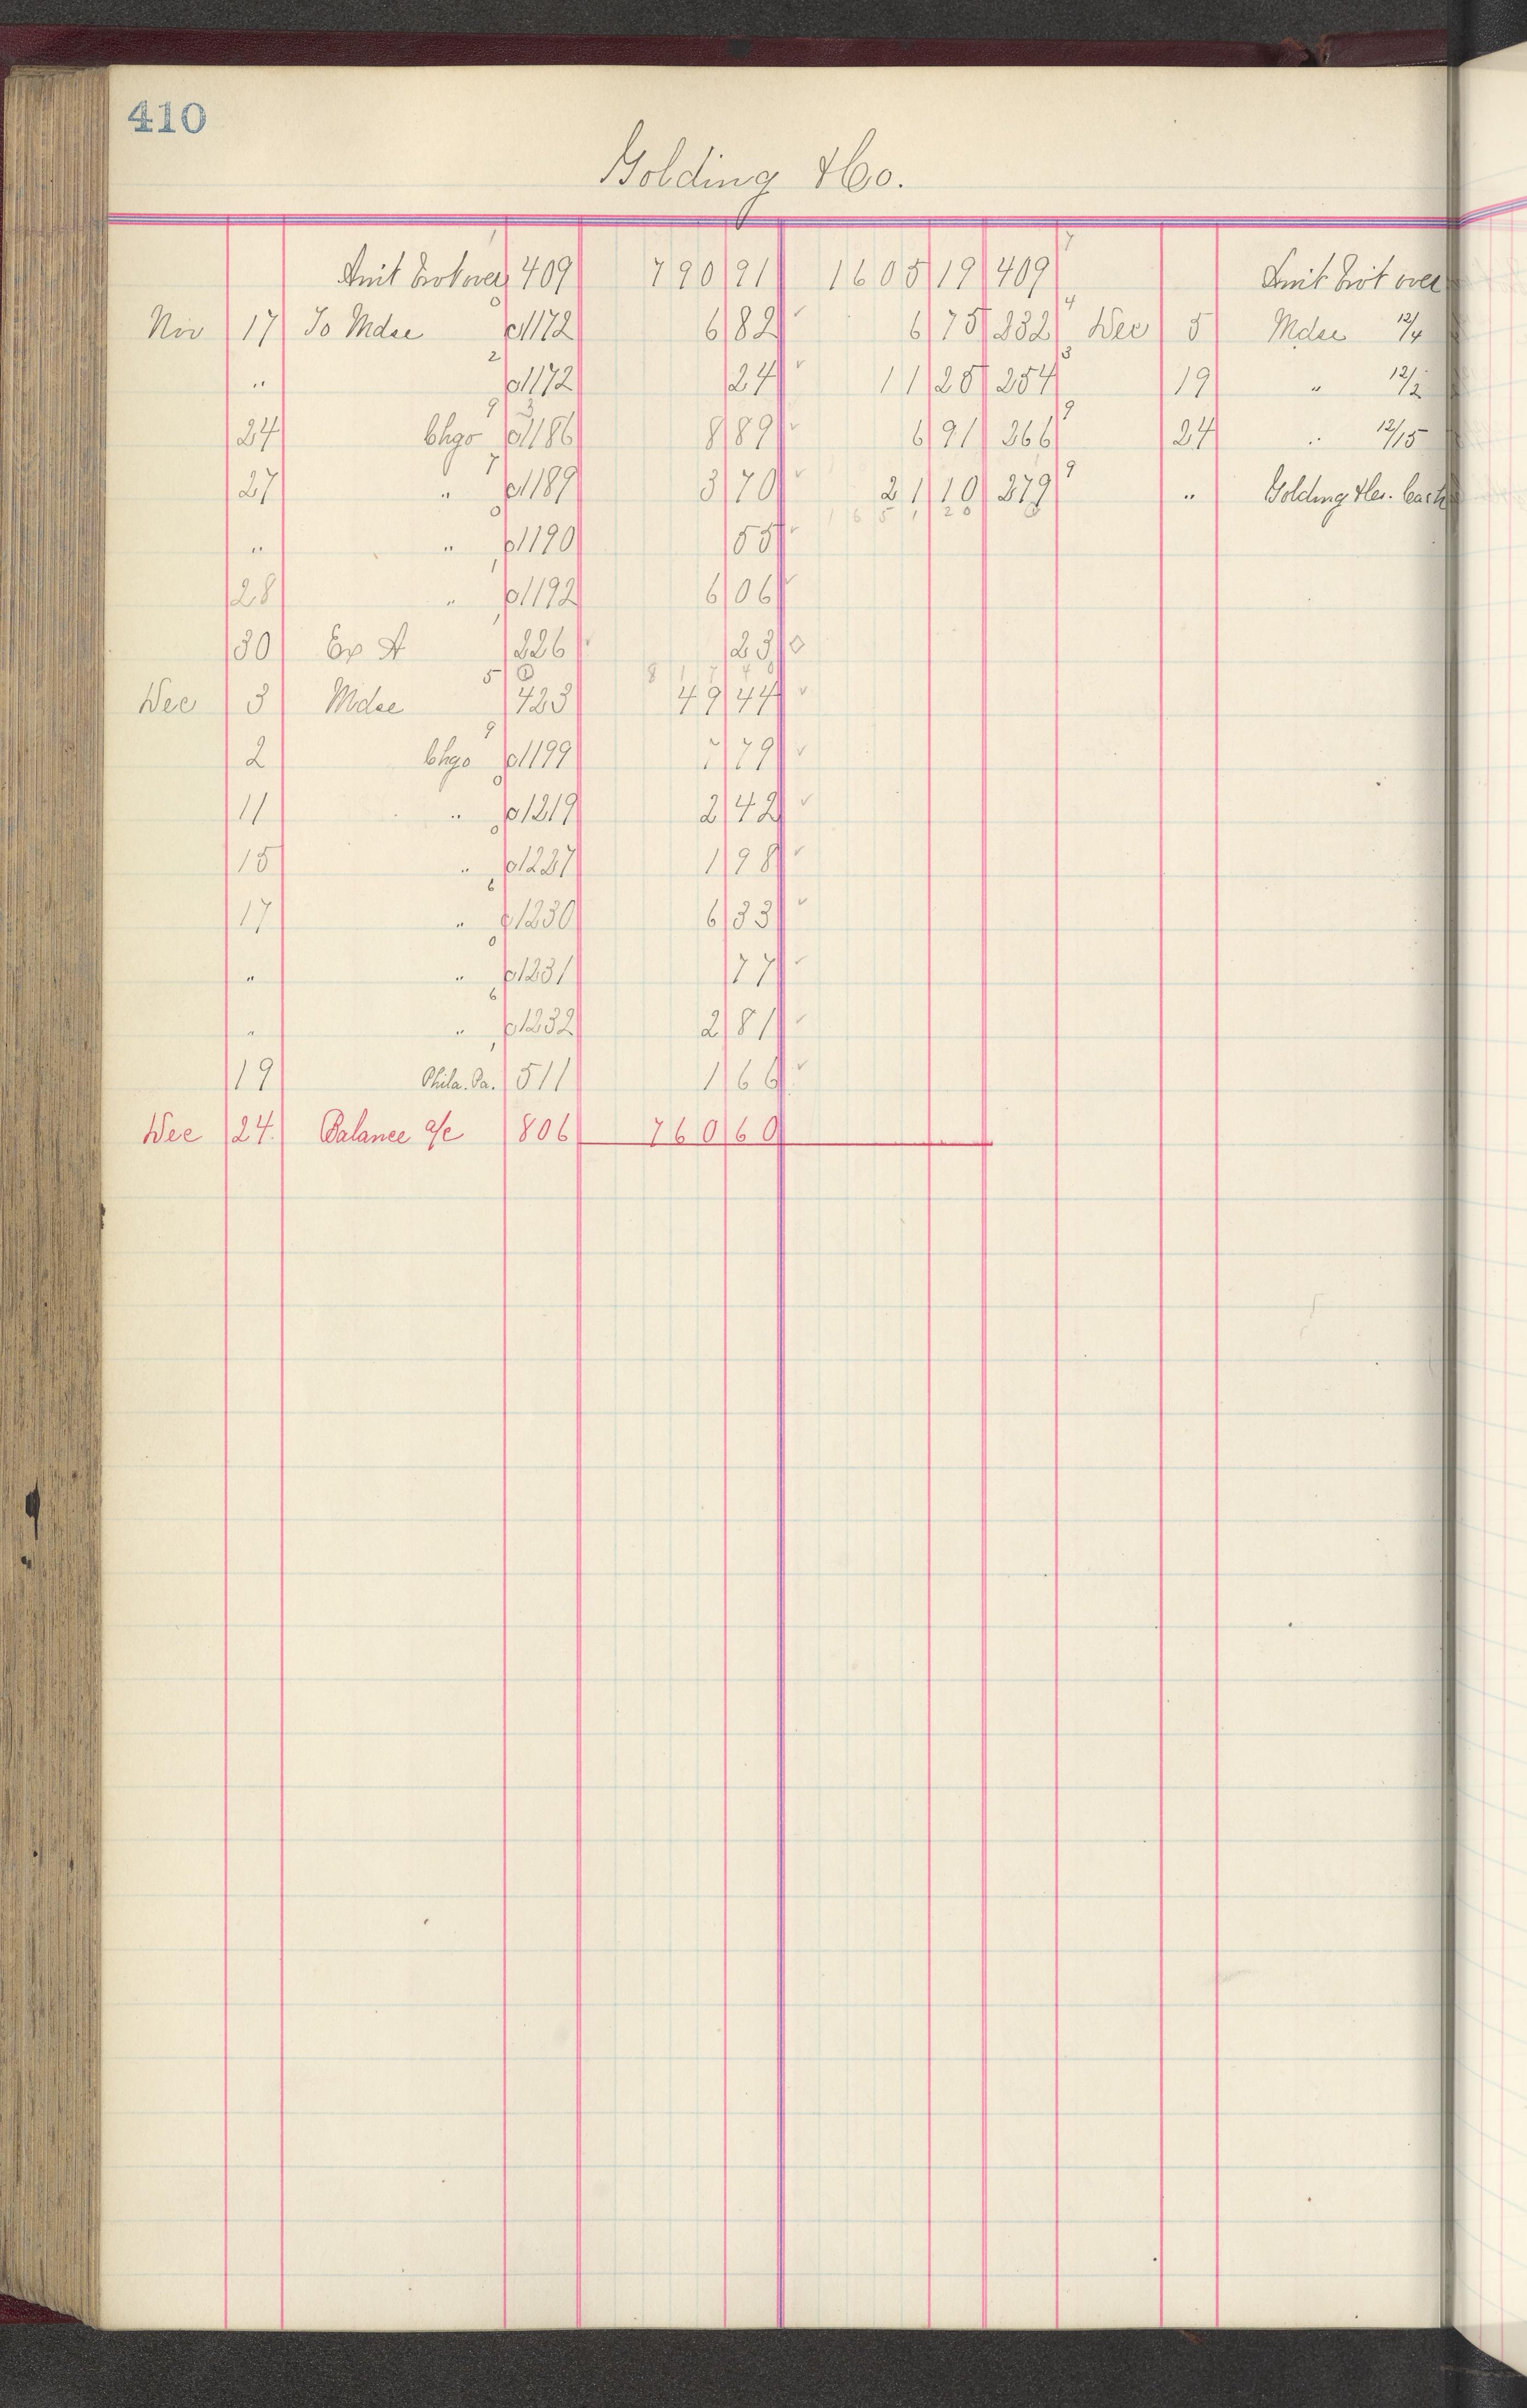 410
Golding & Co.
Amt Brot over 409 790 91 1605 19 409 7 Amt Brot over
Nov 17 To Mdse 0 c1172 6 82 ✓ 6 75 232 4 Dec 5 Mdse 12/4
" 2 c1172 24 ✓ 11 25 254 3 19 "
24 Chgo 9 c1186 8 89 ✓ 6 91 266 9 24 " 12/15
27 " 7 c1189 3 70 ✓ 21 10 279 9 " Golding & Co. Cash
1651 20
" " 0 c1190 55 ✓
28 " 1 c1192 6 06 ✓
30 Ex A 226 23
817 40
Dec 3 Mdse 5 423 49 44 ✓
2 Chgo 9 c1199 7 79 ✓
11 " 0 c1219 2 42 ✓
15 " 0 c1227 1 98 ✓
17 " 6 c1230 6 33 ✓
" " 0 c1231 77 ✓
" " 6 c1232 2 81 ✓
19 Phila. Pa. 511 1 66 ✓
Dec 24. Balance a/c 806 760 60